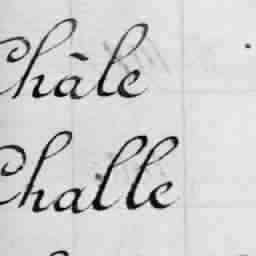 Châle
Challe